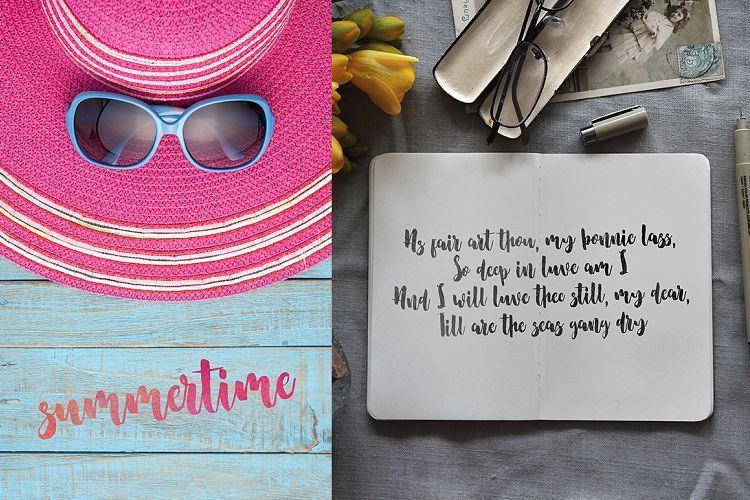 summertime
As fair art thou, my bonnie lass,
So deep in luve am I
And I will luve thee still, my dear,
Till are the seas gang dry